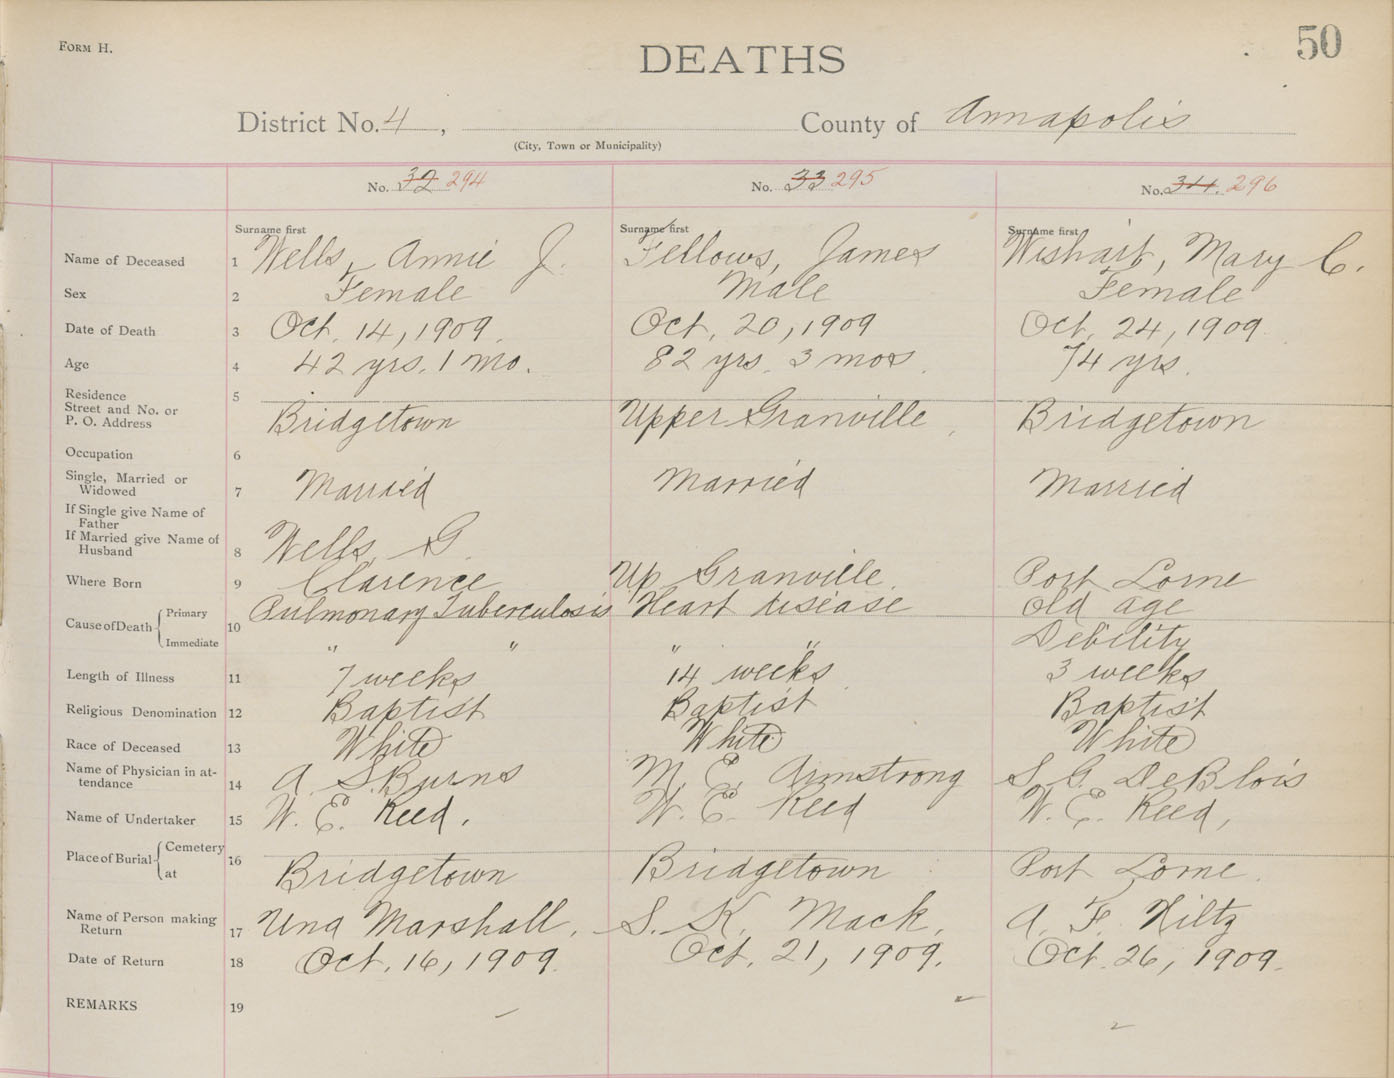 FORM H.
50
DEATHS
District No. 4, County of Annapolis
(City, Town or Municipality)
No. 32 294 No. 33 295 No. 34. 296
Surname first Surname first Surname first
Name of Deceased 1 Wells, Annie J. Fellows, James Wishart, Mary C.
Sex 2 Female Male Female
Date of Death 3 Oct. 14, 1909. Oct. 20, 1909 Oct. 24, 1909.
Age 4 42 yrs. 1 mo. 82 yrs. 3 mos. 74 yrs.
Residence 5
Street and No. or
P. O. Address Bridgetown Upper Granville, Bridgetown
Occupation 6
Single, Married or
Widowed 7 Married Married Married
If Single give Name of
Father
If Married give Name of
Husband 8 Wells, G.
Where Born 9 Clarence Up. Granville. Port Lorne
Cause of Death Primary 10 Pulmonary Tuberculosis Heart disease Old age
Immediate " " " " Debility
Length of Illness 11 7 weeks 14 weeks 3 weeks
Religious Denomination 12 Baptist Baptist Baptist
Race of Deceased 13 White White White
Name of Physician in at-
tendance 14 A. S. Burns M. E. Armstrong S. G. DeBlois
Name of Undertaker 15 W. E. Reed. W. E. Reed W. E. Reed,
Place of Burial Cemetery 16
at Bridgetown Bridgetown Port Lorne.
Name of Person making
Return 17 Una Marshall. S. K. Mack. A. F. Hiltz
Date of Return 18 Oct. 16, 1909. Oct. 21, 1909. Oct. 26, 1909.
REMARKS 19